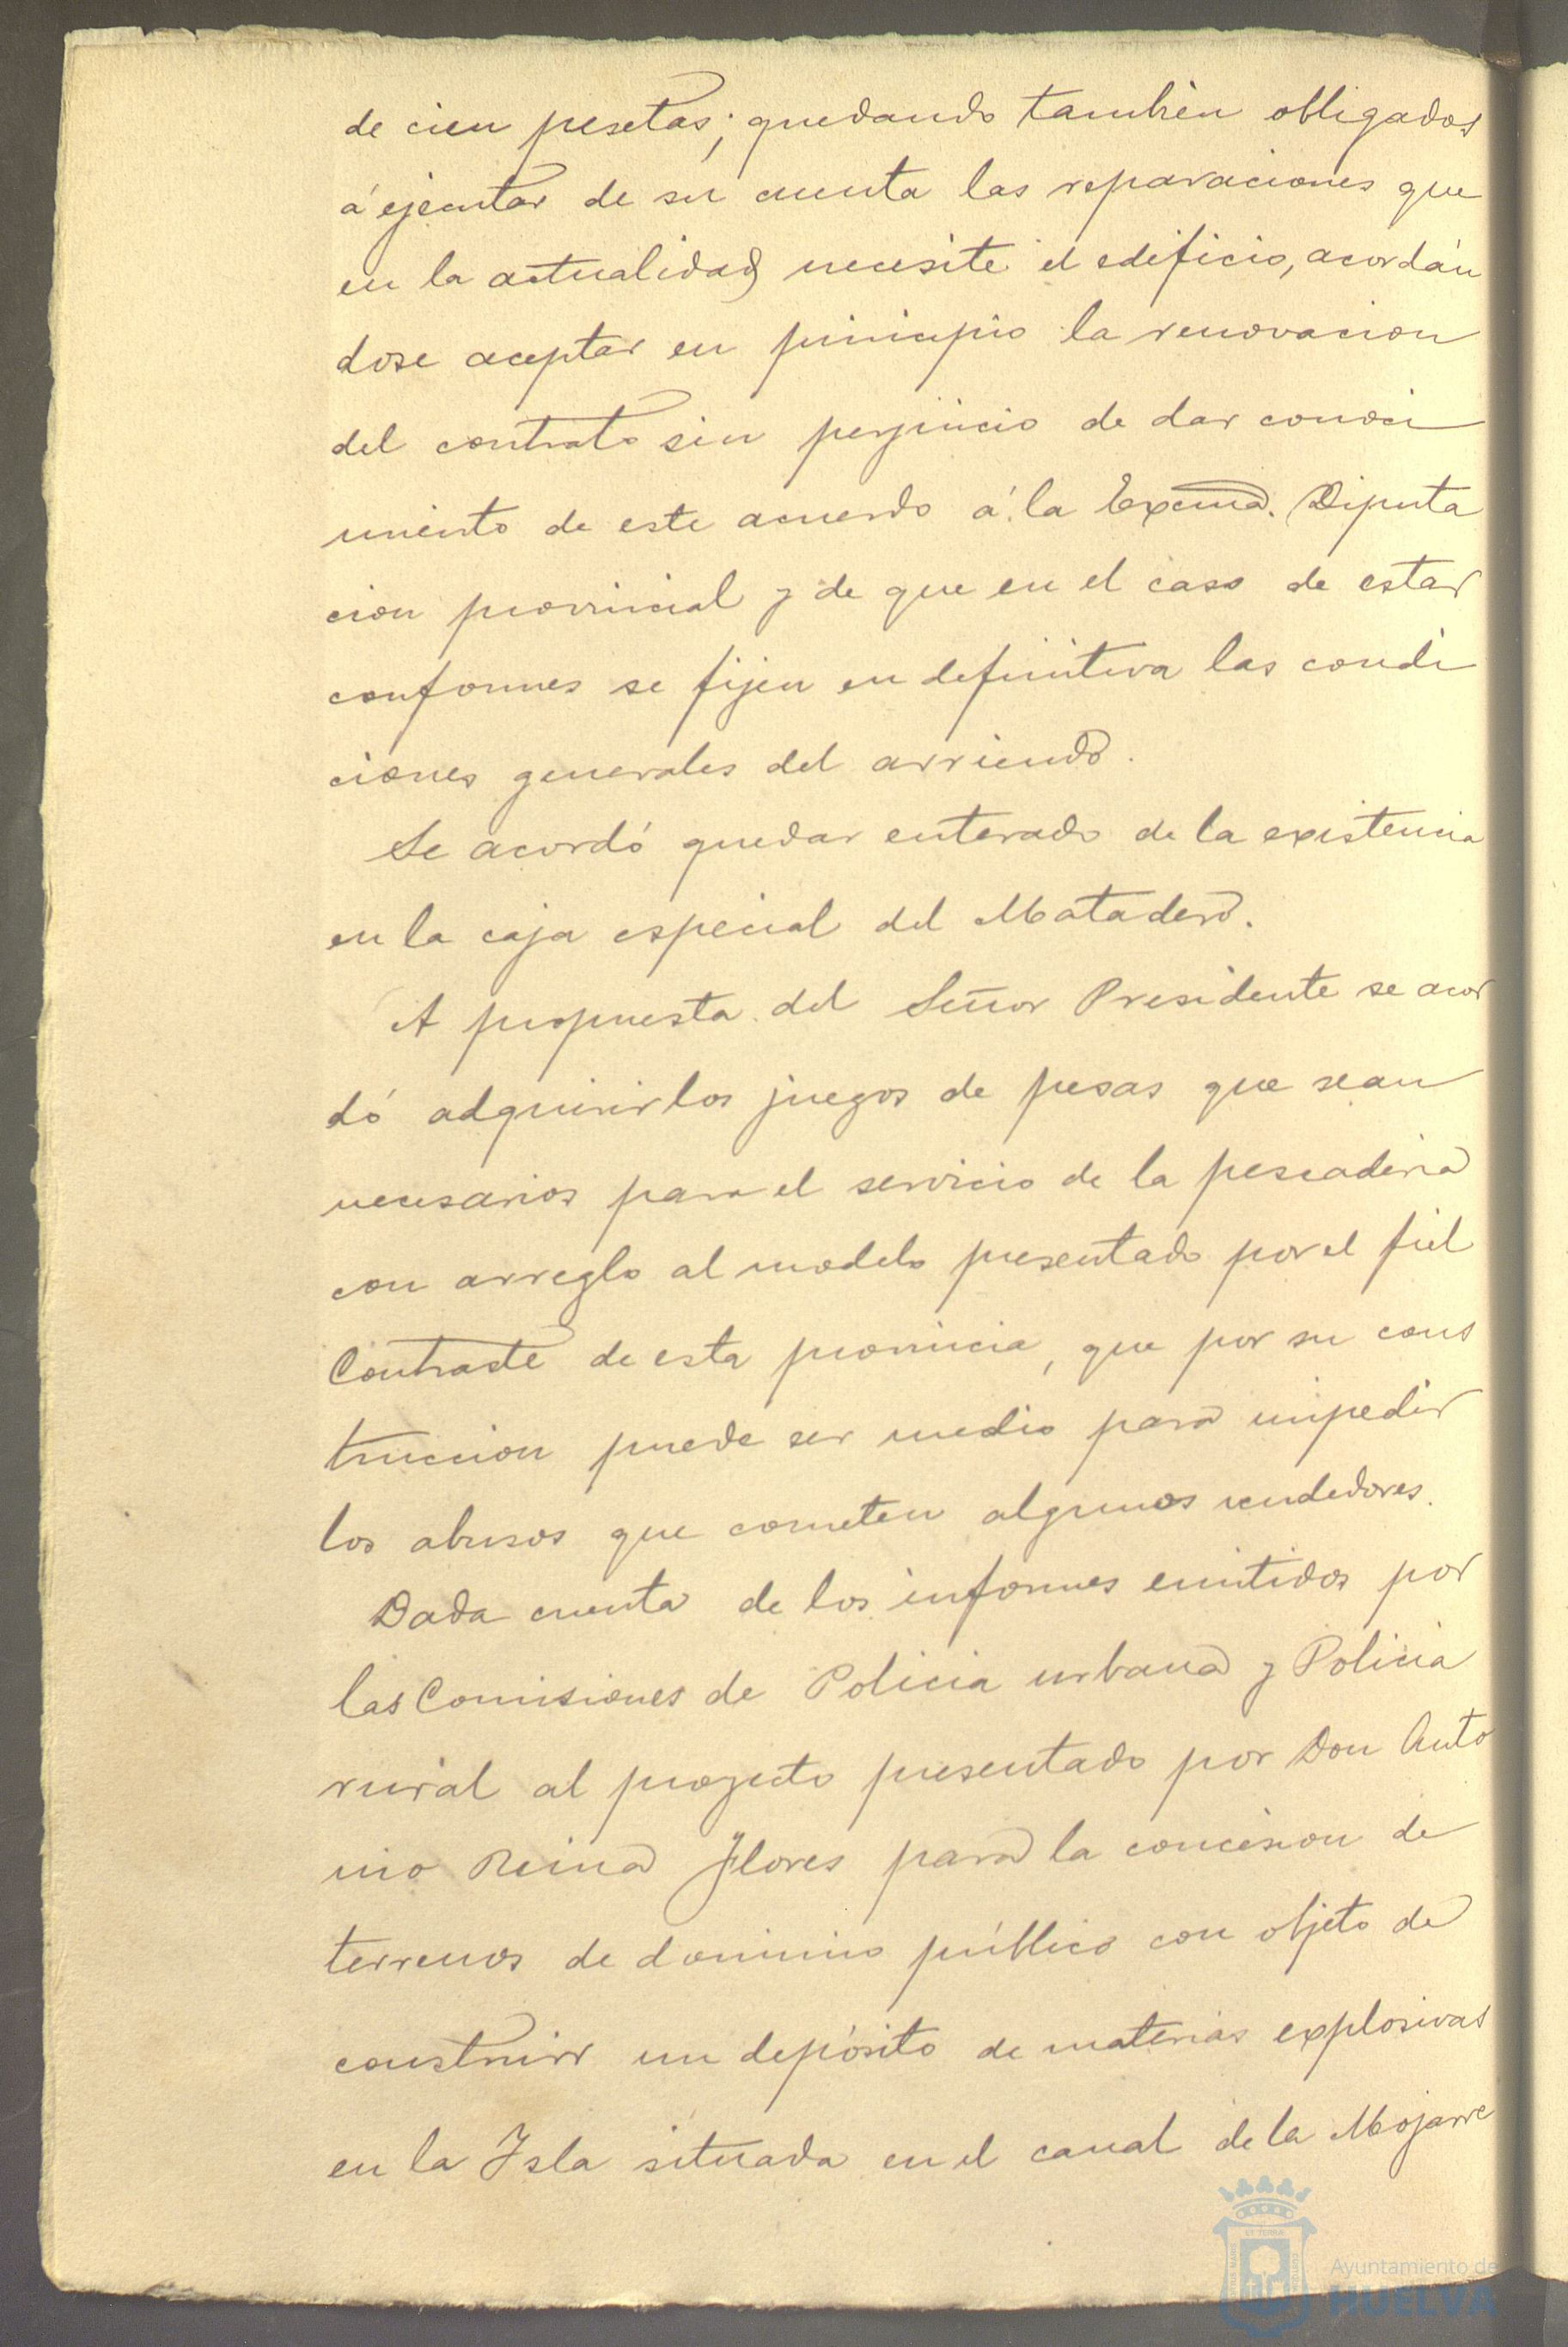 de cien pesetas; quedando tambien obligados
á ejecutar de su cuenta las reparaciones que
en la actualidad necesite el edificio, acordán
dose aceptar en principio la renovacion
del contrato sin perjuicio de dar conoci
miento de este acuerdo á la Excma. Diputa
cion provincial y de que en el caso de estar
conformes se fijen en definitiva las condi
ciones generales del arriendo.
Se acordó quedar enterado de la existencia
en la caja especial del Matadero.
A propuesta del Señor Presidente se acor
dó adquirir los juegos de pesas que sean
necesarios para el servicio de la pescaderia
con arreglo al modelo presentado por el fiel
Contraste de esta provincia, que por su cons
truccion puede ser medio para impedir
los abusos que cometen algunos vendedores.
Dada cuenta de los informes emitidos por
las Comisiones de Policia urbana y Policia
rural al proyecto presentado por Don Anto
nio Reina Flores para la concesion de
terrenos de dominio público con objeto de
construir un depósito de materias explosivas
en la Isla situada en el canal de la Mojarre
Ayuntamiento de
HUELVA